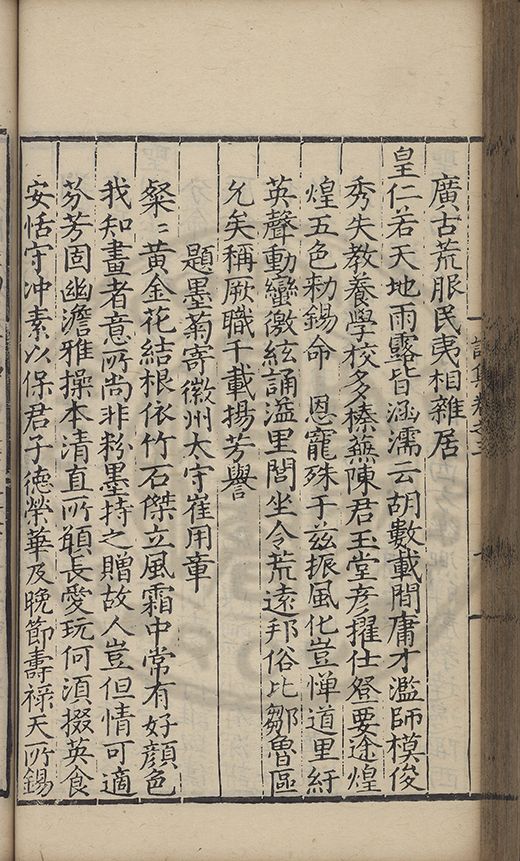 詩集卷之
廣古荒服民夷相雜居
皇仁若天地雨露皆涵濡云胡數載間庸才濫師模俊
秀失教養學校多榛蕪陳君玉堂彥擢仕登要途煌
煌五色勑錫命　恩寵殊于兹振風化豈憚道里紆
英聲動蠻徼絃誦溢里閭坐令荒遠邦俗比鄒魯區
允矣稱厥職千載揚芳譽
題墨菊寄徽州太守崔用章
粲〻黃金花結根依竹石傑立風霜中常有好顔色
我知畫者意所尚非粉墨持之贈故人豈但情可適
芬芳固幽澹雅操本清直所願長愛玩何須掇英食
安恬守冲素以保君子德榮華及晚節壽祿天所錫